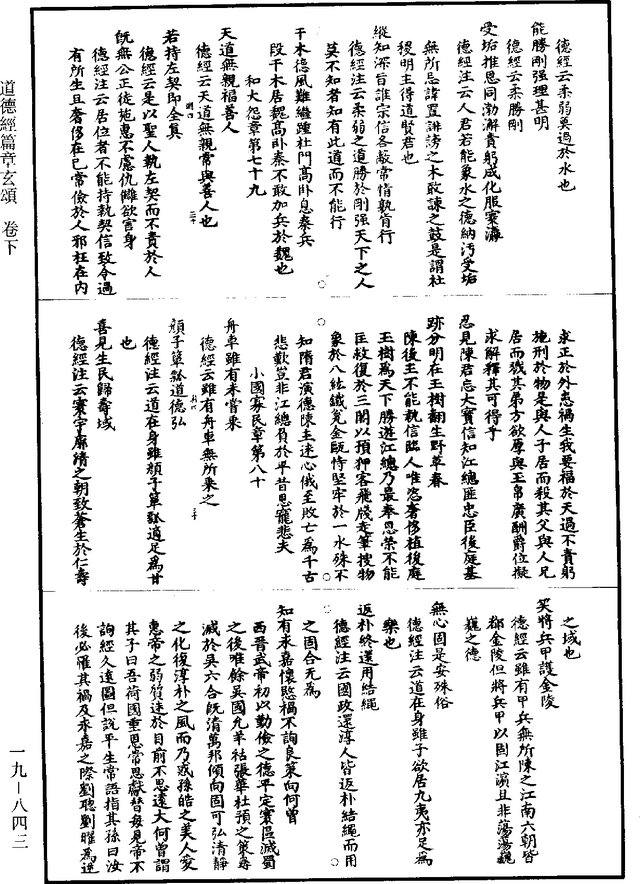 道德經篇章玄頌　卷下
德經云柔弱莫過於水也
能勝剛强理甚明
德經云柔勝剛
受垢推恩同渤澥責躬成化服寰瀛
德經注云人君若能象水之德納汚受垢
無所忌諱置誹謗之木敢諫之鼓是謂社
稷明主得道賢君也
縱知深旨誰宗信各敵常情孰肯行
德經注云柔弱之道勝於剛强天下之人
莫不知者知有此道而不能行
干木德風難繼踵杜門高卧息秦兵
段干木居魏高卧秦不敢加兵於魏也
和大怨章第七十九
天道無親福善人
德經云天道無親常與善人也
若持左契即全眞
德經云是以聖人執左契而不責於人
旣無公正徒施惠不慮仇讎欲害身
德經注云居位者不能持執契信致令過
有所生且奢侈在己常儉於人邪枉在內
求正於外恚禍生我要福於天過不責躬
施刑於物是與人子居而殺其父與人兄
居而戮其弟方欲厚與玉帛廣酬爵位擬
求解釋其可得乎
忍見陳君忘大寶信知江總匪忠臣後庭基
跡分明在玉樹翻生野草春
陳後主不能執信臨人唯恣奢侈植後庭
玉樹爲天下勝遊江總乃最奉恩榮不能
匡救復於三閣以預狎客飛牋走筆搜物
象於八紘鐵瓮金甌恃堅牢於一水殊不
知隋君演德陳主迷心俄至敗亡爲千古
悲歎豈非江總負於平昔恩寵悲夫
小國寡民章第八十
舟車雖有未嘗乘
德經云雖有舟車無所乘之
顔子簞瓢道德弘
德經注云道在身雖顔子簞瓢適足爲甘
也
喜見生民歸壽域
德經注云寰宇廓清之朝致蒼生於仁壽
之域也
笑將兵甲護金陵
德經云雖有甲兵無所陳之江南六朝皆
都金陵但將兵甲以固江濵且非蕩蕩巍
巍之德
無心固是安殊俗
德經注云道在身雖子欲居九夷亦足爲
樂也
返朴終還用結繩
德經注云國政還淳人皆返朴結繩而用
之固合无爲
知有永嘉懷愍禍不詢良策向何曾
西晉武帝初以勤儉之德平定寰區滅蜀
之後唯餘吳國允羊祜張華杜預之策尋
滅於吳六合旣清萬邦傾向固可弘清靜
之化復淳朴之風而乃戮孫皓之美人愛
惠帝之弱質迷於目前不思遠大何曾謂
其子曰吾荷國重恩常思獻替每見帝不
詢經久遠圖但說平生常語指其孫曰汝
後必罹其禍及永嘉之際劉聰劉曜爲逆
一九－八四三